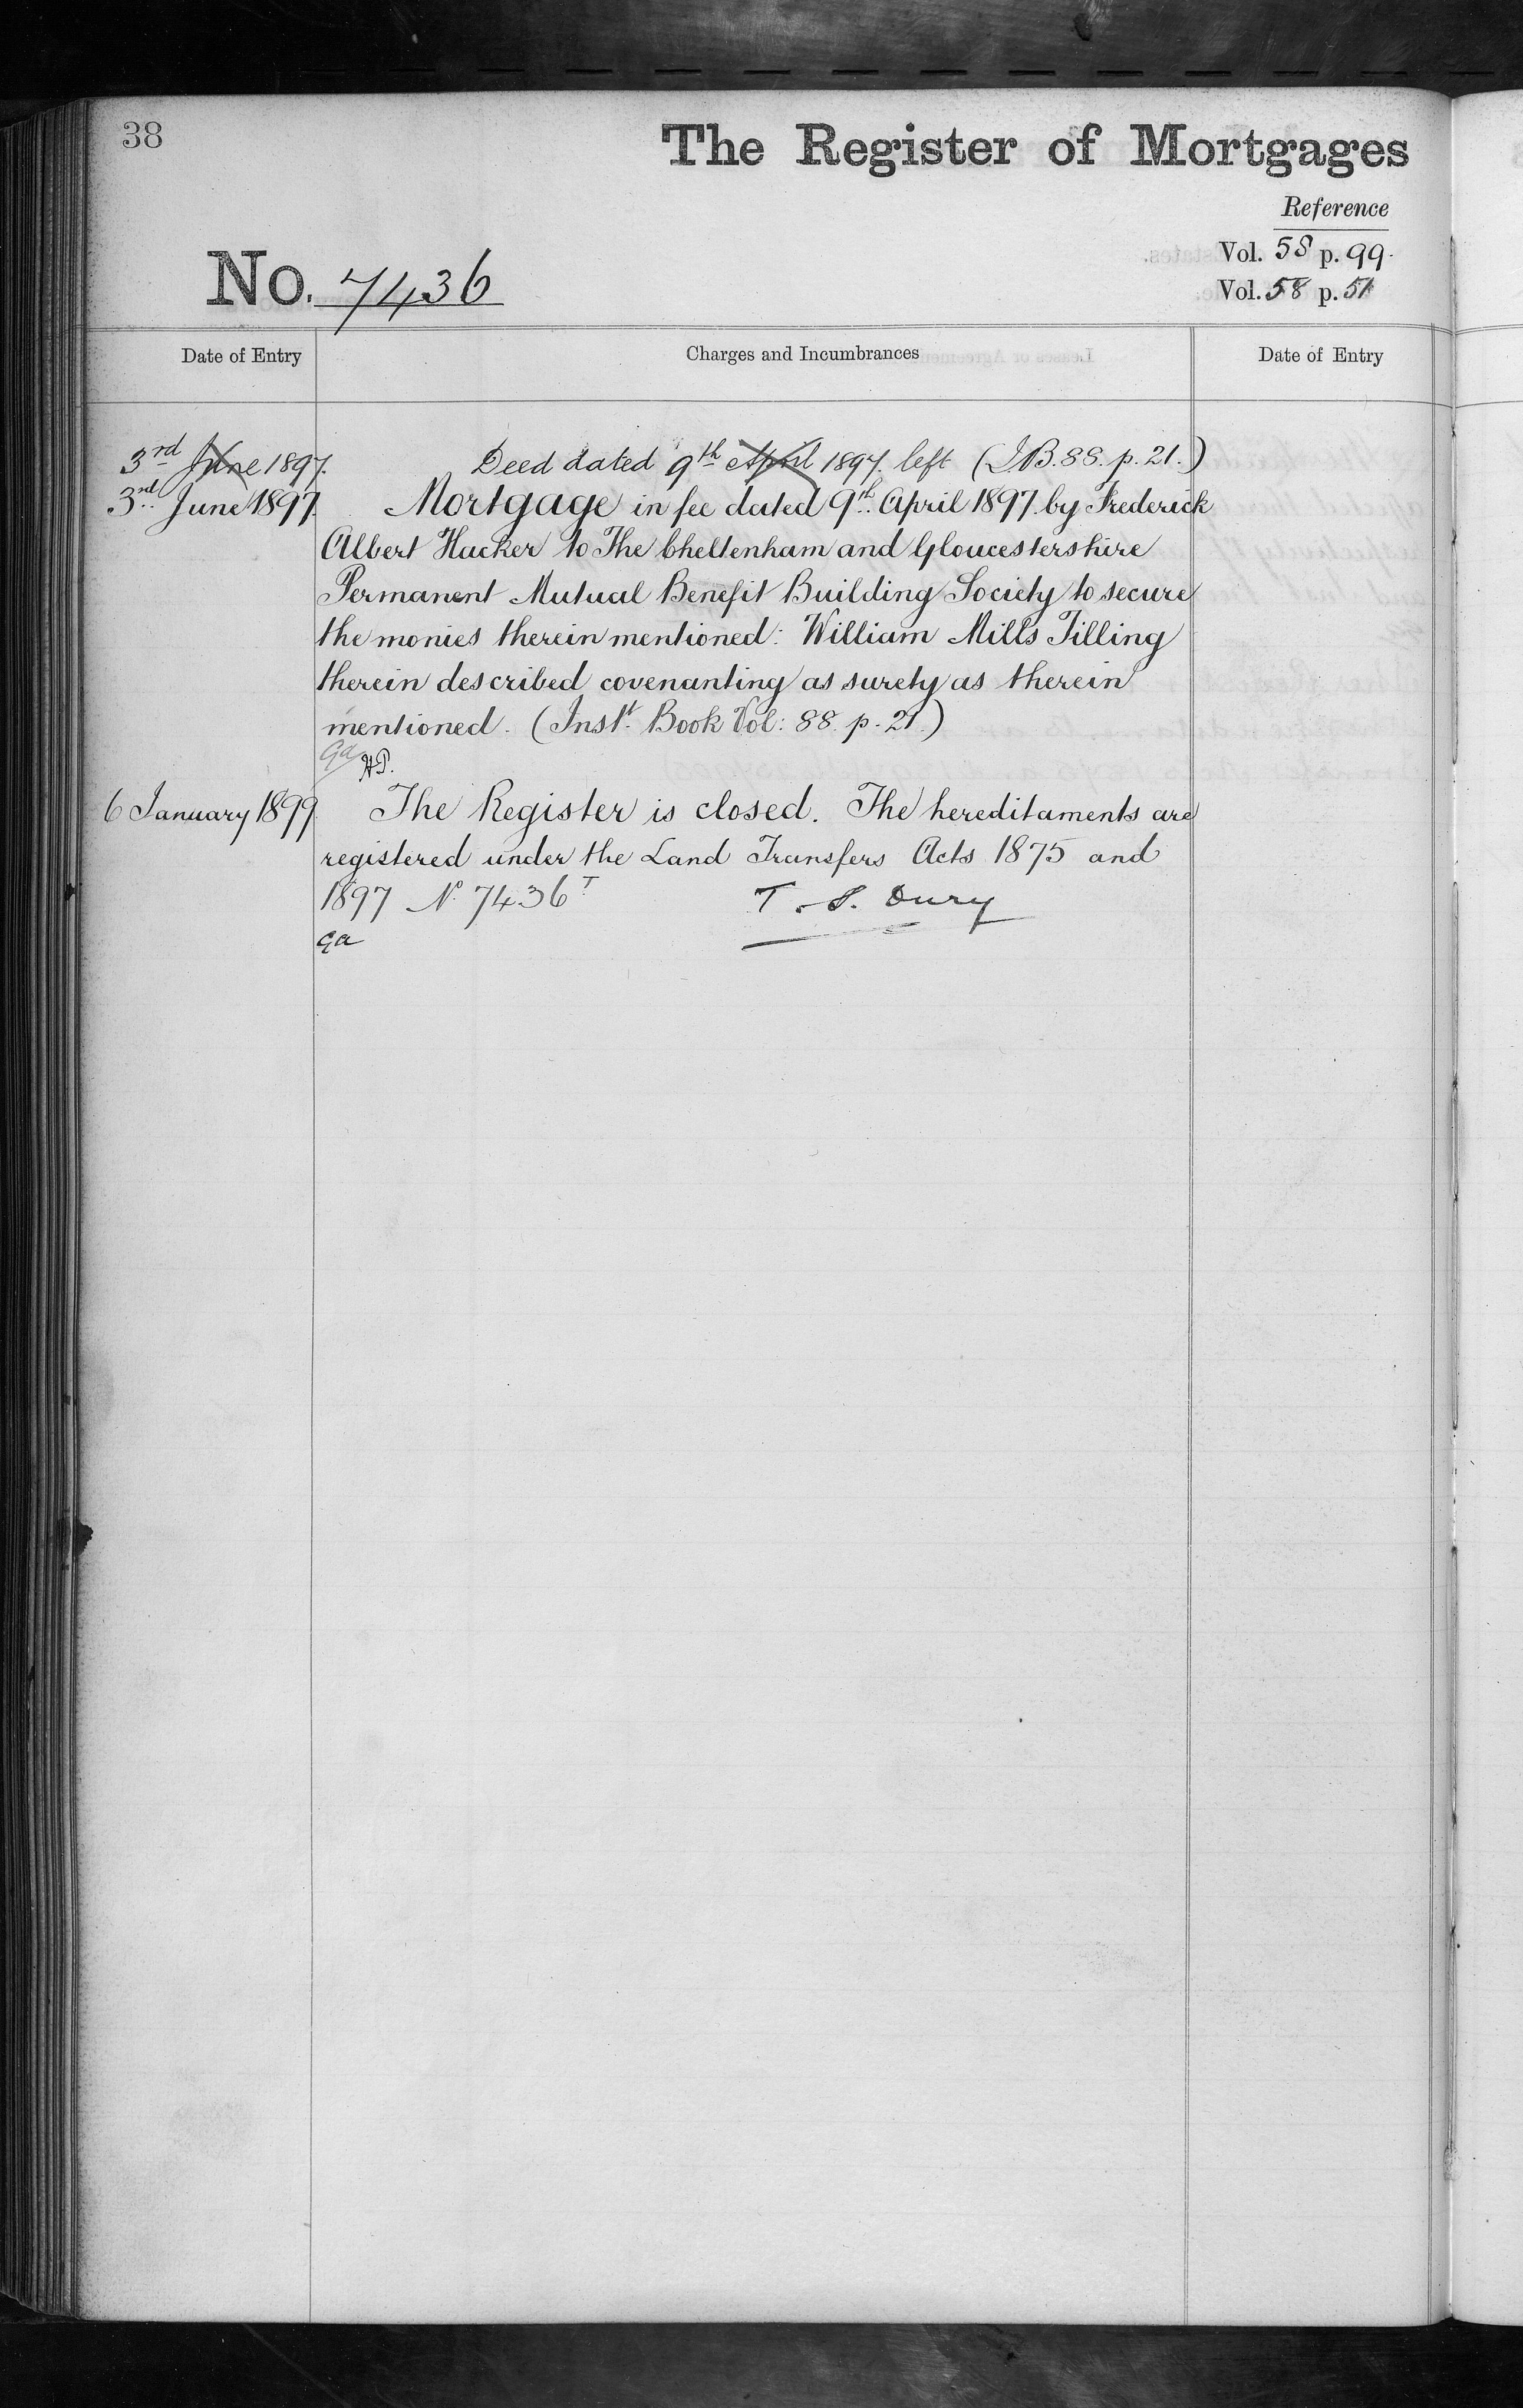 38
The Register of Mortgages
Reference
Vol. 58 p. 99.
Vol. 58 p. 51
No. 7436
Date of Entry
Charges and Incumbrances
Date of Entry
3rd June 1897. Deed dated 9th April 1897. left (I.B. 88. p. 21.)
3rd June 1897 Mortgage in fee dated 9th April 1897 by Frederick
Albert Hucker to The Cheltenham and Gloucestershire
Permanent Mutual Benefit Building Society to secure
the monies therein mentioned: William Mills Tilling
therein described covenanting as surety as therein
mentioned. (Inst. Book Vol: 88. p. 21.)
Ga
HP.
6 January 1899 The Register is closed. The hereditaments are
registered under the Land Transfers Acts 1875 and
1897 No. 7436T
T. S. Dury
Ga